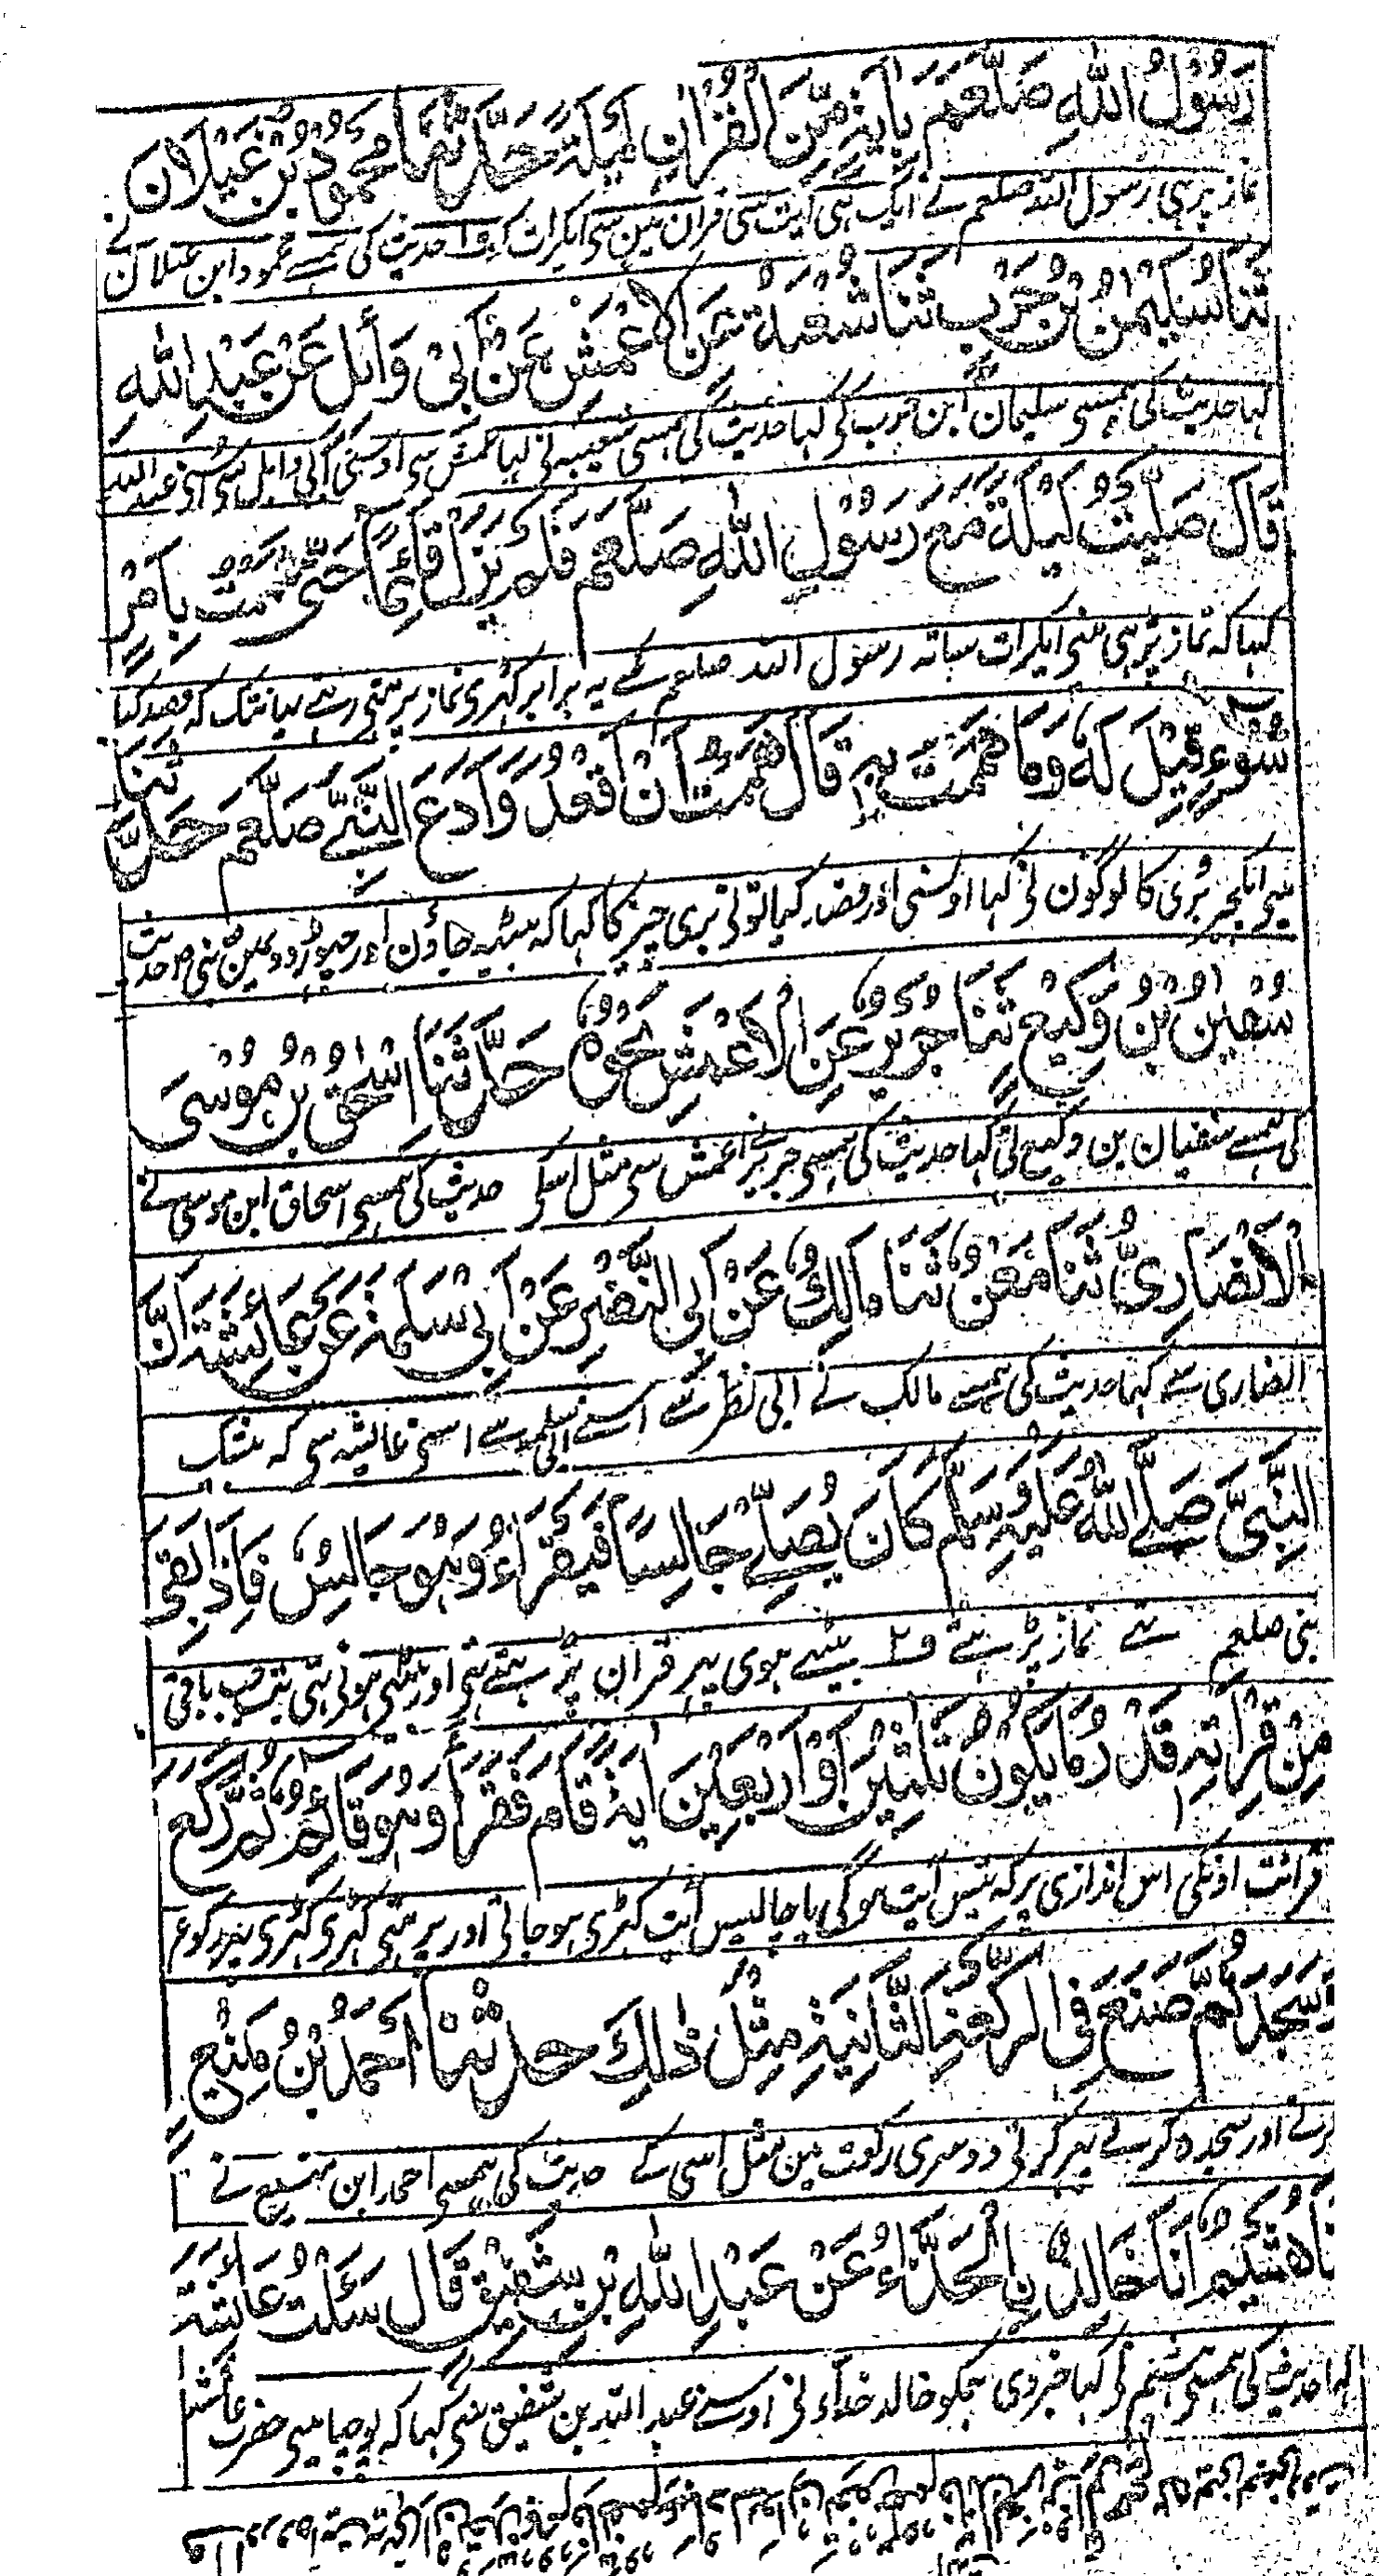 رَسُوْلُ اللّٰهِ صَلْعَمْ بِاٰيَةٍ مِّنَ الْقُرْاٰنِ لَيْلَةً حَدَّثَنَا مَحْمُوْدُ بْنُ غَيْلَانَ
نماز پڑہی رسول اللہ صلعم نے ایک ہی آیت سی قران مین سی ایکرات کو ف۱ حدیث کی ہمسے محمود ابن غیلان نے
ثَنَا سُلَيْمٰنُ بْنُ حَرْبٍ ثَنَا شُعْبَةُ عَنِ الْاَعْمَشِ عَنْ اَبِيْ وَائِلٍ عَنْ عَبْدِ اللّٰهِ
کہا حدیث کی ہمسی سلیمان ابن حرب نی کہا حدیث کی ہمسی شعیبہ نی کہا عمش سی اوسنی ابی وایل سی اسنی عبد اللہ
قَالَ صَلَّيْتُ لَيْلَةً مَعَ رَسُوْلِ اللّٰهِ صَلْعَمْ فَلَمْ يَزَلْ قَائِمًا حَتّٰى هَمَمْتُ بِاَمْرِ
کہا کہ نماز پڑہی مینی ایکرات ساتہ رسول اللہ صلعم کے یہ برابر کہڑی نماز پڑہتی رہے یہانتک کہ قصد کیا
سُوْءٍ قِيْلَ لَهٗ وَمَا هَمَمْتَ بِهٖ قَالَ هَمَمْتُ اَنْ اَقْعُدَ وَاَدَعَ النَّبِيَّ صَلْعَمْ حَدَّثَنَا
مینی ایکچیز بری کا لوگون نی کہا اوسنی اور قصد کیا تونی بری چیز کا کہا کہ بیٹہہ جاؤن اور چہوڑدون مین نبی کو حدیث
سُفْيٰنُ بْنُ وَكِيْعٍ ثَنَا جَرِيْرٌ عَنِ الْاَعْمَشِ نَحْوَهٗ حَدَّثَنَا اِسْحٰقُ بْنُ مُوْسٰى
کی ہمسے سفیان بن وکیع نی کہا حدیث کی ہمسی جریر نے اعمش سی مثل اسکی حدیث کی ہمسی اسحاق ابن موسی نے
الْاَنْصَارِيُّ ثَنَا مَعْنٌ ثَنَا مَالِكٌ عَنْ اَبِي النَّضْرِ عَنْ اَبِيْ سَلَمَةَ عَنْ عَائِشَةَ اَنَّ
انصاری سے کہا حدیث کی ہمسے مالک نے ابی نظر سے اسنے ابی سلمہ سے اسنی عایشہ سی کہ بیشک
النَّبِيَّ صَلَّى اللّٰهُ عَلَيْهِ وَسَلَّمَ كَانَ يُصَلِّيْ جَالِسًا فَيَقْرَاُ وَهُوَ جَالِسٌ فَاِذَا بَقِيَ
نبی صلعم تہے نماز پڑہتے ف۲ بیٹہے ہوی پہر قران پڑہتے تہی اور بیٹہی ہوتی تہی پس جب باقی
مِنْ قِرَاءَتِهٖ قَدْرُ مَا يَكُوْنُ ثَلٰثِيْنَ اَوْ اَرْبَعِيْنَ اٰيَةً قَامَ فَقَرَاَ وَهُوَ قَائِمٌ ثُمَّ رَكَعَ
قرائت اونکی اس اندازی پر کہ تیس آیت ہوگی یا چالیس آیت کہڑی ہو جاتی اور پڑہتی کہڑی کہڑی پہر رکوع
وَسَجَدَ ثُمَّ صَنَعَ فِي الرَّكْعَةِ الثَّانِيَةِ مِثْلَ ذٰلِكَ حدثنا اَحْمَدُ بْنُ مَنِيْعٍ
کرتے اور سجدہ کرتے پہر کرتی دوسری رکعت مین مثل اسی کے حدیث کی ہمسی احمد ابن منیع نے
نَا هُشَيْمٌ اَنَا خَالِدُ نِ الْحَذَّاءُ عَنْ عَبْدِ اللّٰهِ بْنِ شَقِيْقٍ قَالَ سَئَلْتُ عَائِشَةَ
کہا حدیث کی ہمسی ہشیم نی کہا خبر دی ہمکو خالد خداء نی اوسنے عبد اللہ بن شقیق سی کہا کہ پوچہا مینی حضرت عائشہ